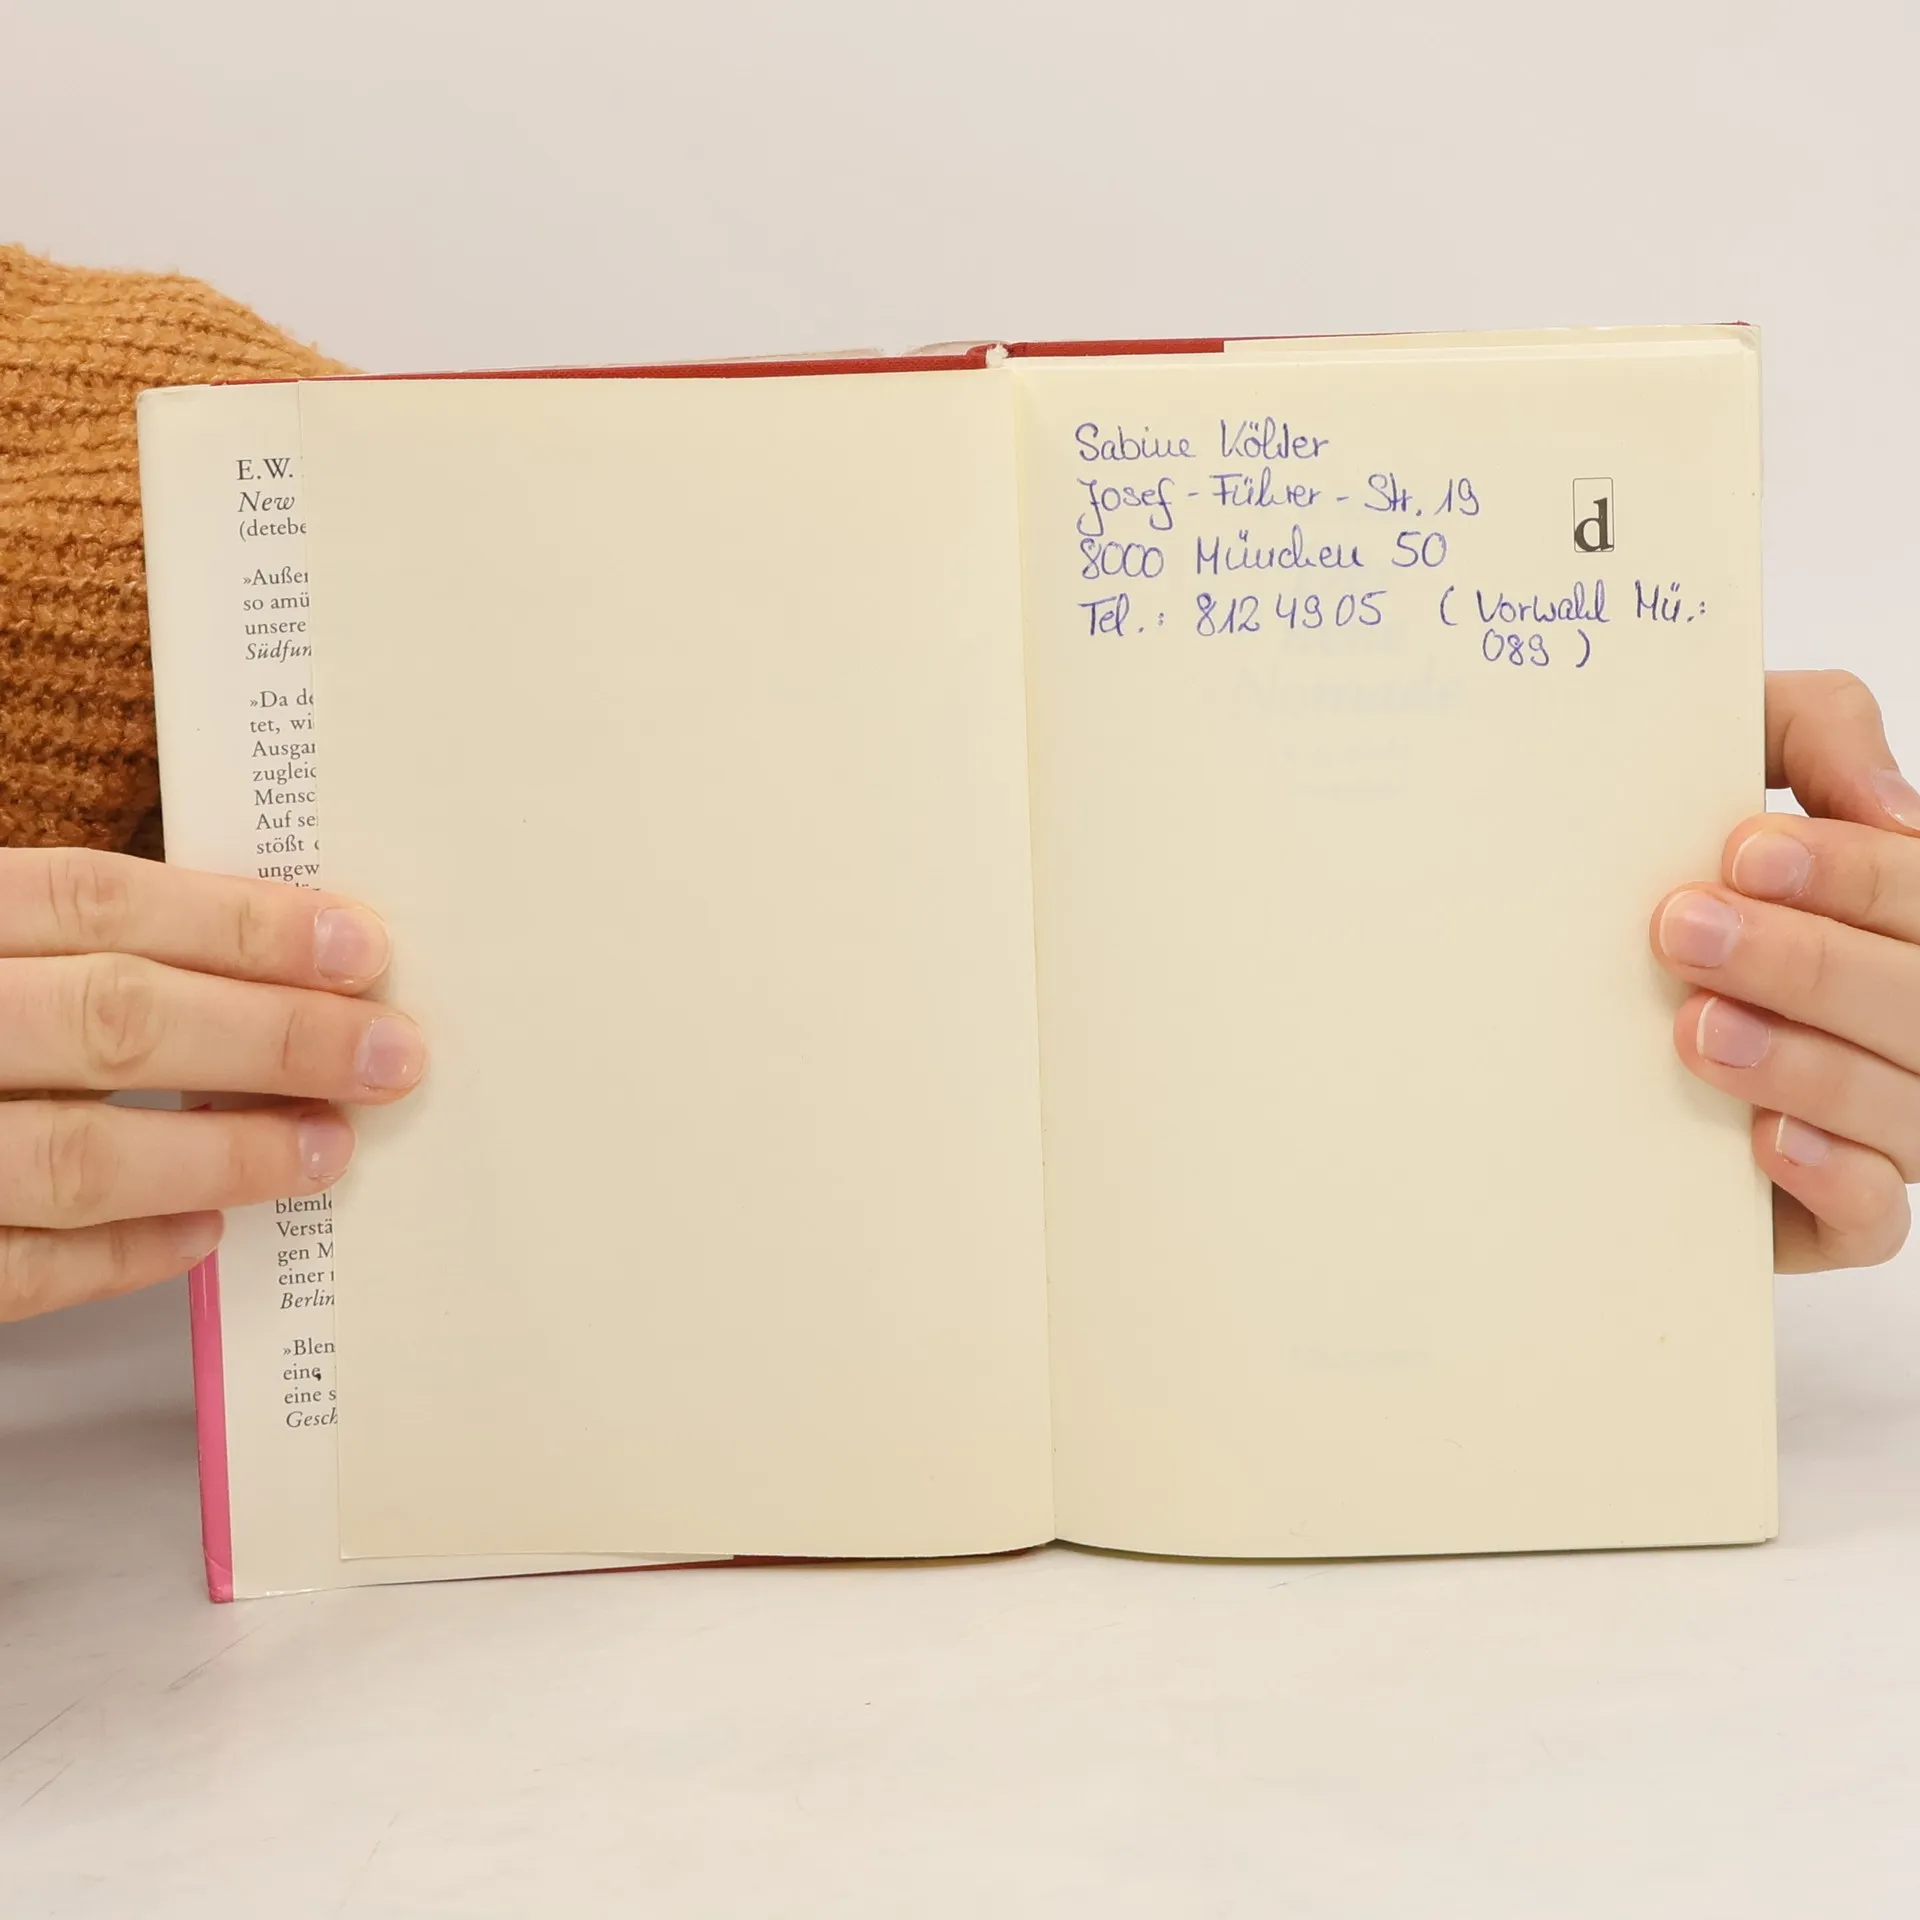 E.W.
New
(detebe
»Außer
so amü
unsere
Südfun
»Da de
tet, wi
Ausgan
zugleic
Mensc
Auf se
stößt
ungew
bleml
Verstä
gen M
einer
Berlin
»Blen
eine
eine s
Gesch
Sabine Köhler
Josef - Führer - Str. 19
8000 München 50
Tel.: 812 49 05 ( Vorwahl Mü.:
089 )
d